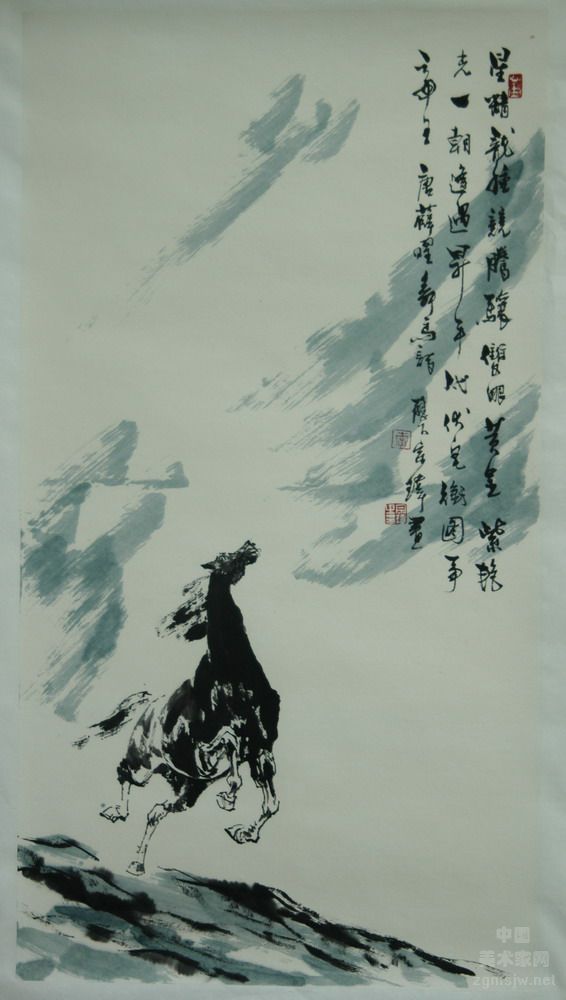 星精龍種競騰驤雙眼黃金紫艷
光一朝逢遇昇平代伏皂銜圖事
帝王 唐薛曜舞馬詩 畫
中国
美术家网
zgmsjw.net